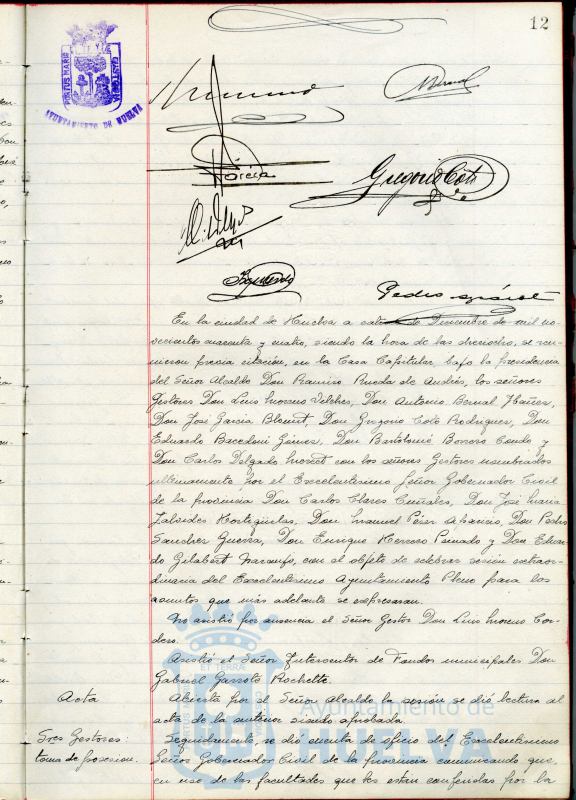 12
PORTUS MARIS
ET TERRE CUSTODIA
AYUNTAMIENTO DE HUELVA
Bernal
García
Gregorio Coto
Izquierdo
Pedro
En la ciudad de Huelva a catorce de Diciembre de mil no-
vecientos cuarenta y cuatro, siendo la hora de las dieciocho, se reu-
nieron previa citación, en la Casa Capitular bajo la Presidencia
del Señor Alcalde Don Ramiro Rueda de Andrés, los señores
Gestores Don Luis Moreno Vilches, Don Antonio Bernal Ibañez,
Don José García Blount, Don Gregorio Coto Rodriguez, Don
Eduardo Bacedoni Gómez, Don Bartolomé Borrero Conde y
Don Carlos Delgado Morcet con los señores Gestores nombrados
ultimamente por el Excelentísimo Señor Gobernador Civil
de la provincia Don Carlos Clares Cuñales, Don José María
Hortigüelas, Don Manuel Pérez Aparicio, Don Pedro
Sanchez Guerra, Don Enrique Herrero Pintado y Don Eduar-
do Gilabert Naranjo, con el objeto de celebrar sesión extraor-
dinaria del Excelentísimo Ayuntamiento Pleno para los
asuntos que más adelante se expresaran.
No asistió por ausencia el Señor Gestor Don Luis Moreno Cor-
dero.
Asistió el Señor Interventor de Fondos municipales Don
Gabriel Garrote Rochette.
Acta
Abierta por el Señor Alcalde la sesión se dió lectura al
acta de la anterior siendo aprobada.
Tres Gestores:
toma de posesión.
Seguidamente, se dió cuenta de oficio del Excelentísimo
Señor Gobernador Civil de la provincia comunicando que,
en uso de las facultades que les estan conferidas por la
Ayuntamiento de
HUELVA